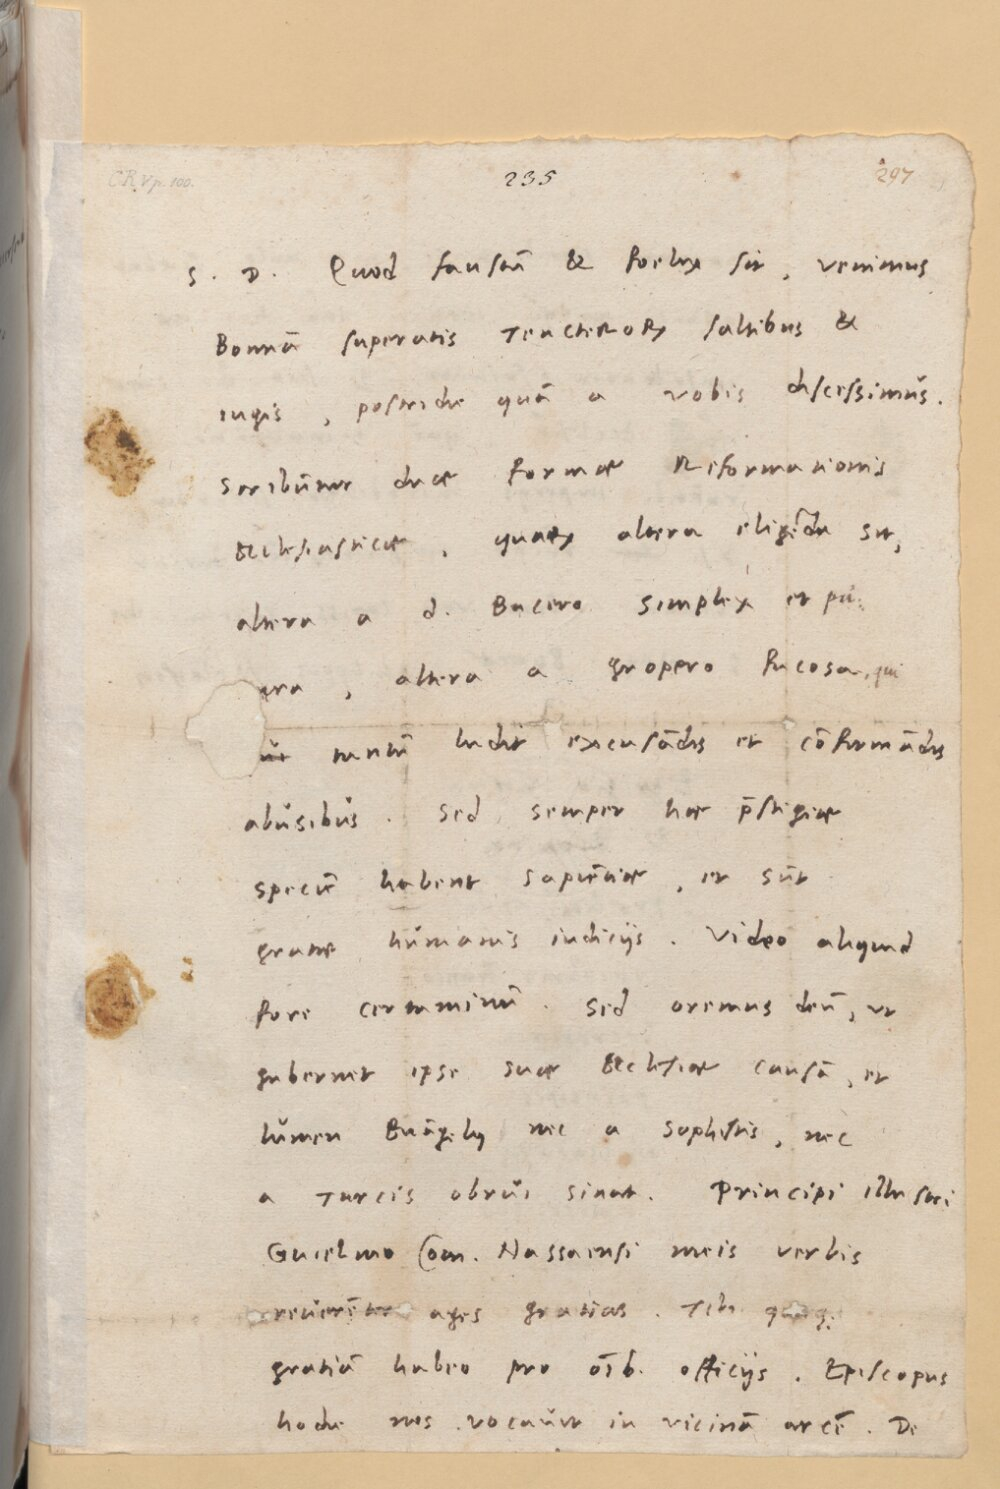 C.R. V p. 100. 235 297
S. D. Quod faustū & foelix sit, venimus
Bonnā superatis TencteRoRꝝ saltibus &
iugis, postridie quā a vobis discessimus.
Scribūtur duae formae Reformationis
Ecclesiasticae, quaꝝ altera eligēda sit,
altera a d. Bucero simplex et pu,
ura, altera a gropero fucosa, qui
ut tantū ludit excusādis et cōfirmādis
abusibus. Sed semper hae p̄stigiae
speciē habent sapiētiae, et sūt
gratae humanis iudicijs. Video aliquid
fore certaminū. Sed oremus deū, ut
gubernet ipse suae Ecclesiae causā, et
lumen Euāgelij nec a sophistis, nec
a Turcis obrui sinat. Principi illustri
Guielmo Com. Nassaensi meis verbis
reuerēter ages gratias. Tibi quoq;
gratiā habeo pro oīb. officijs. Episcopus
hodie nos vocauit in vicinā arcē. De